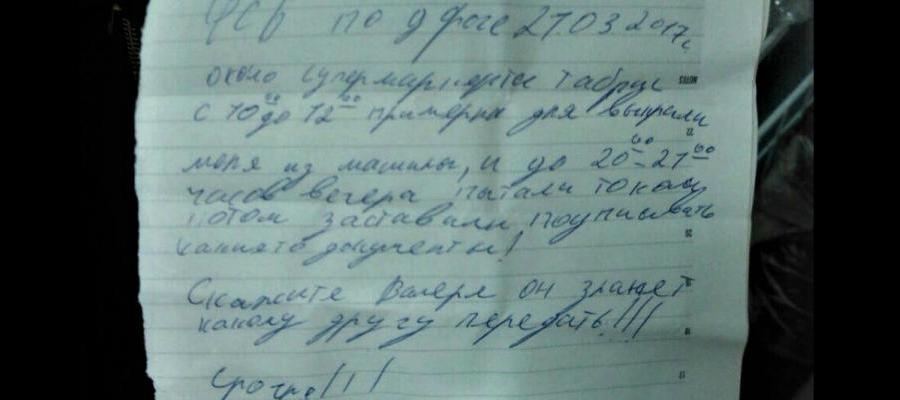 ФСБ по дороге 27.03.2017г
около супермаркета Табрис
с 10 00 до 12 00 примерна дня выкрали
меня из машины, и до 20 00 - 21 00
часов вечера пытали током
потом заставили подписывать
какието документы!
Скажите Валере он знает
какому другу передать!!!
Срочно!!!
NOTES